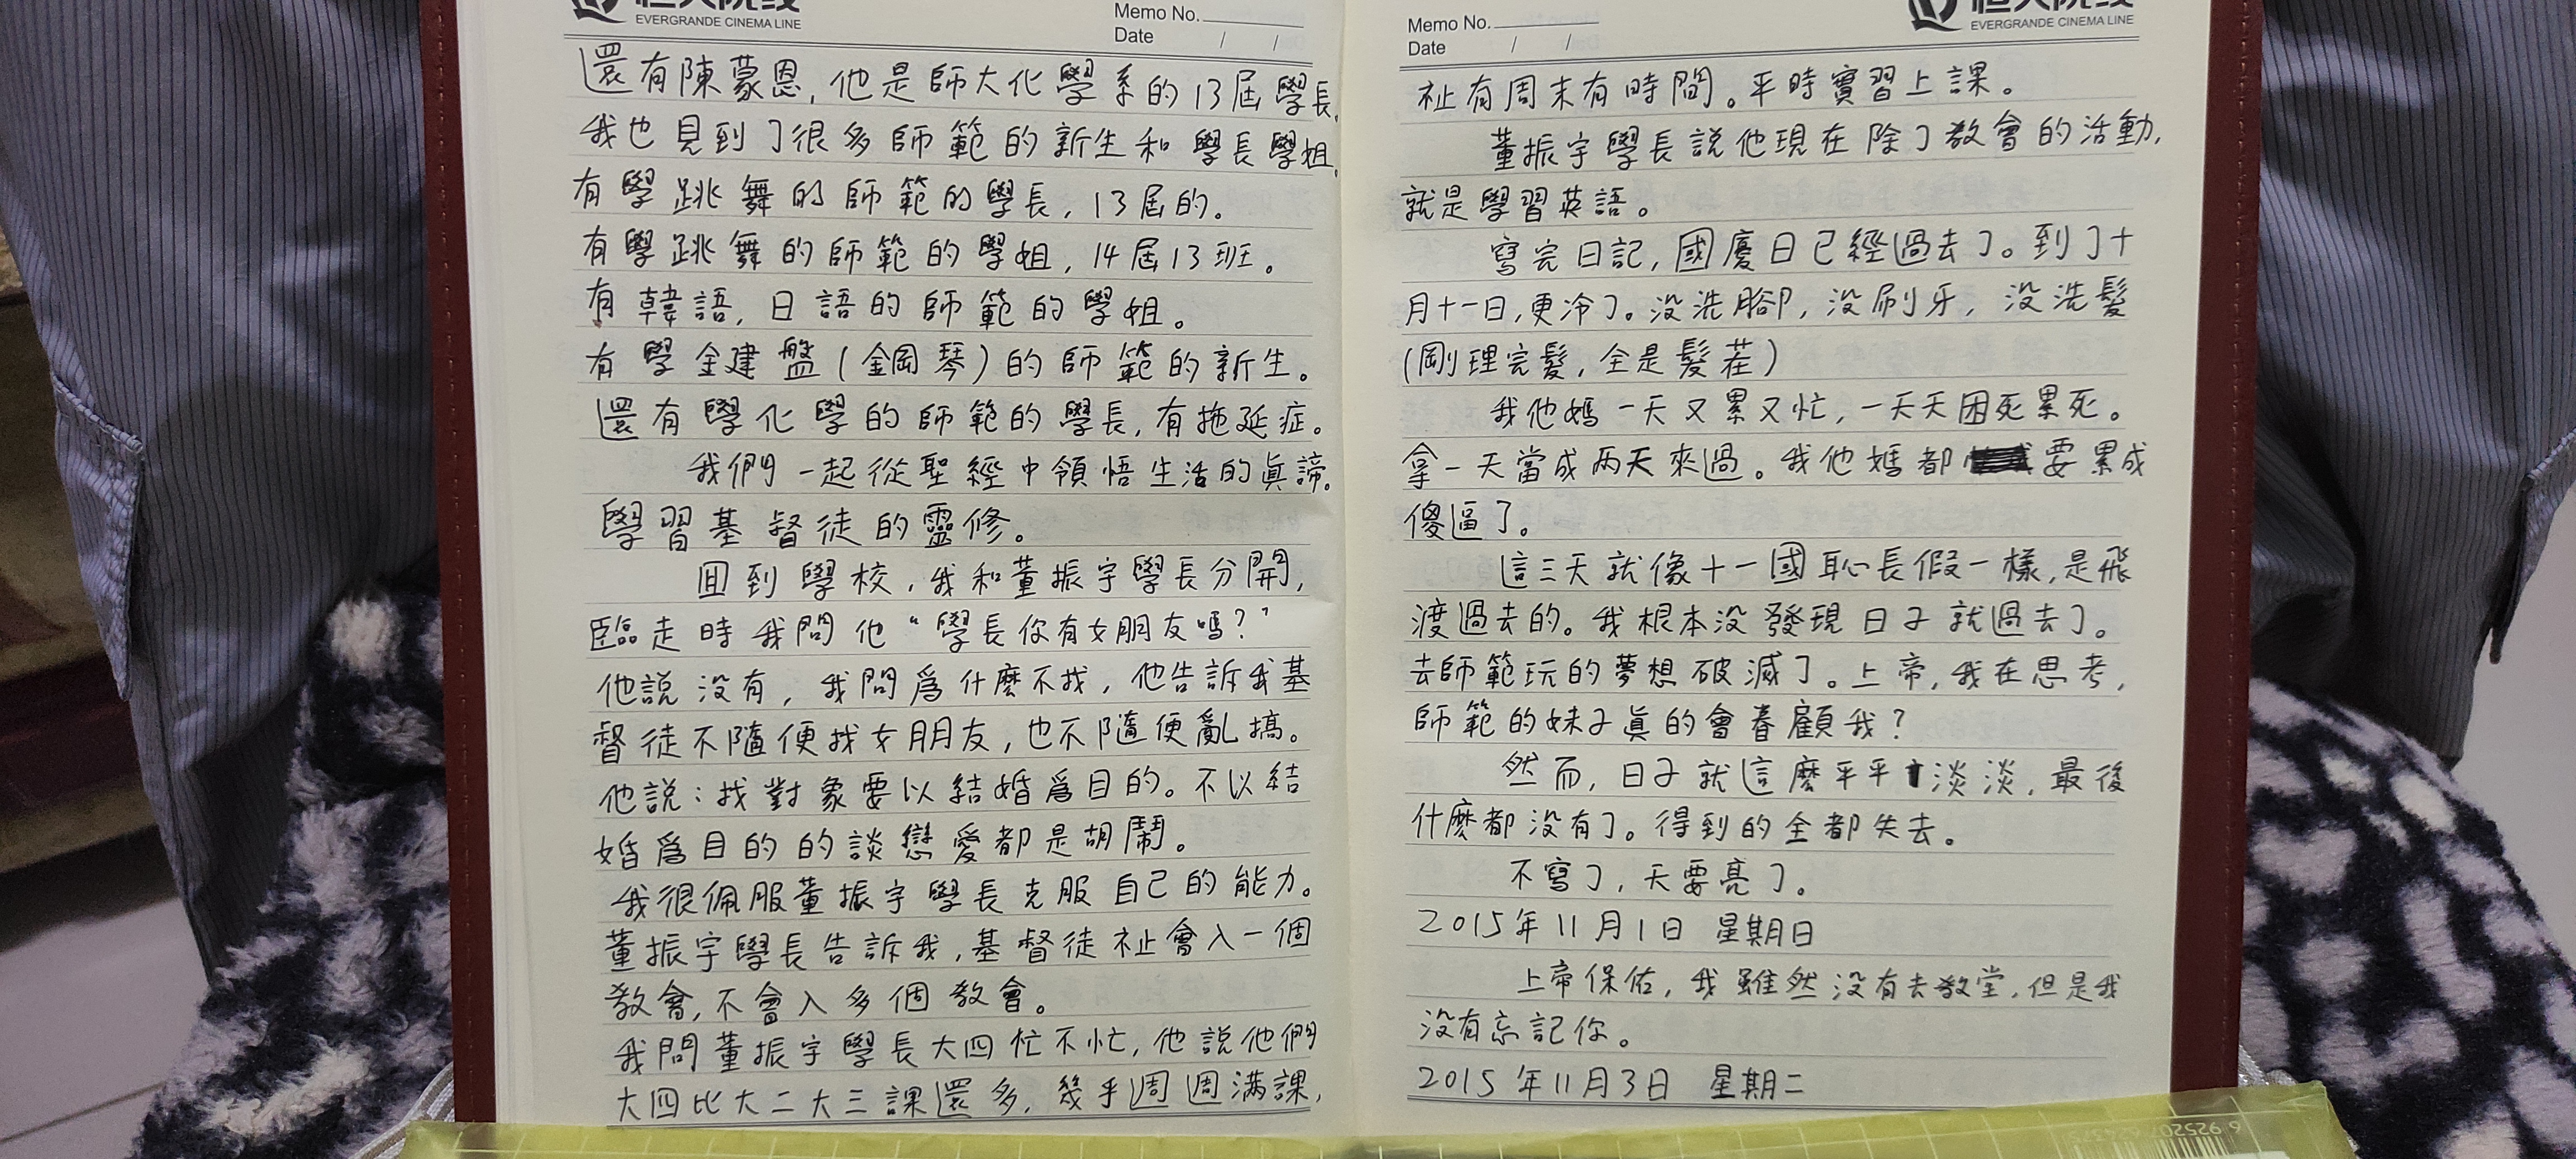 EVERGRANDE CINEMA LINE
Memo No.
Date / /
還有陳蒙恩，他是師大化學系的13屆學長。
我也見到了很多師範的新生和學長學姐。
有學跳舞的師範的學長，13屆的。
有學跳舞的師範的學姐，14屆13班。
有韓語，日語的師範的學姐。
有學鍵盤(鋼琴)的師範的新生。
還有學化學的師範的學長，有拖延症。
我們一起從聖經中領悟生活的真諦。
學習基督徒的靈修。
回到學校，我和董振宇學長分開，
臨走時我問他“學長你有女朋友嗎？”
他說沒有，我問為什麼不找，他告訴我基
督徒不隨便找女朋友，也不隨便亂搞。
他說：找對象要以結婚為目的。不以結
婚為目的的談戀愛都是胡鬧。
我很佩服董振宇學長克服自己的能力。
董振宇學長告訴我，基督徒祉會入一個
教會，不會入多個教會。
我問董振宇學長大四忙不忙，他說他們
大四比大二大三課還多，幾乎周周滿課，
Memo No.
Date / /
EVERGRANDE CINEMA LINE
祉有周末有時間。平時實習上課。
董振宇學長說他現在除了教會的活動，
就是學習英語。
寫完日記，國慶日已經過去了。到了十
月十一日，更冷了。沒洗腳，沒刷牙，沒洗髮
(剛理完髮，全是髮茬)
我他媽一天又累又忙，一天天困死累死。
拿一天當成兩天來過。我他媽都要累成
傻逼了。
這三天就像十一國恥長假一樣，是飛
渡過去的。我根本沒發現日子就過去了。
去師範玩的夢想破滅了。上帝，我在思考，
師範的妹子真的會眷顧我？
然而，日子就這麼平平淡淡，最後
什麼都沒有了。得到的全都失去。
不寫了，天要亮了。
2015年11月1日 星期日
上帝保佑，我雖然沒有去教堂，但是我
沒有忘記你。
2015年11月3日 星期二